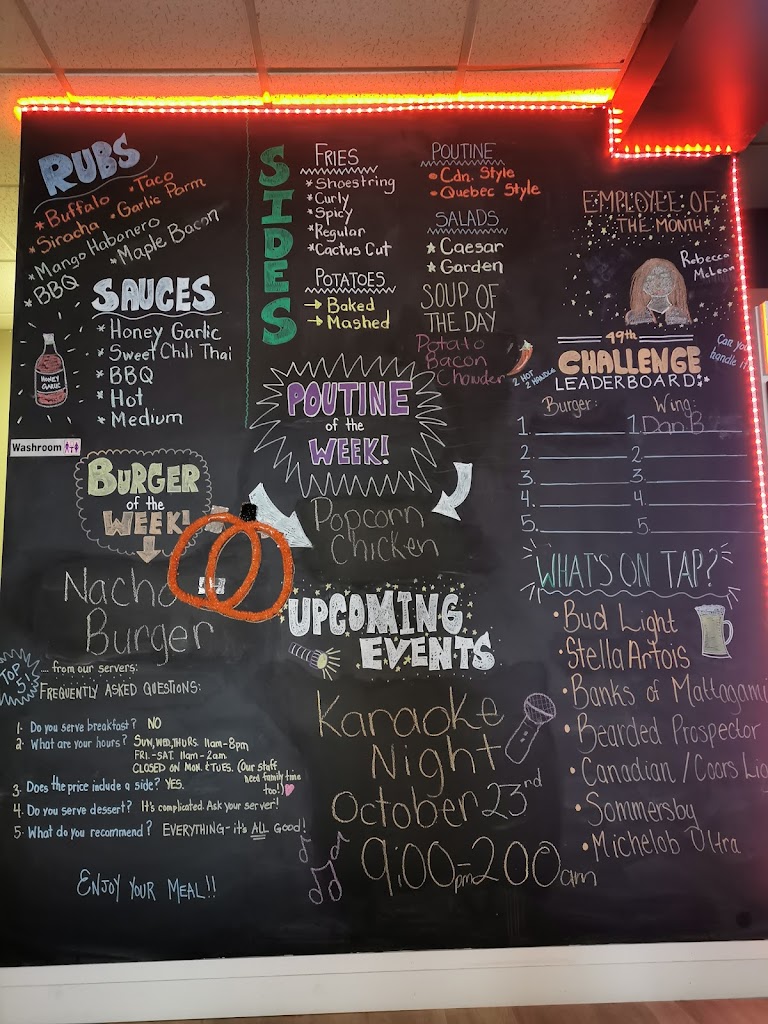 RUBS
* Buffalo * Taco
* Siracha * Garlic Parm
* Mango Habanero
* BBQ * Maple Bacon
SAUCES
* Honey Garlic
* Sweet Chili Thai
* BBQ
* Hot
* Medium
HONEY GARLIC
Washroom
SIDES
FRIES
* Shoestring
* Curly
* Spicy
* Regular
* Cactus Cut
POTATOES
→ Baked
→ Mashed
POUTINE
* Cdn. Style
* Quebec Style
SALADS
* Caesar
* Garden
SOUP OF
THE DAY
Potato
Bacon
Chowder
EMPLOYEE OF
THE MONTH
Rebecca
McLean
49th
CHALLENGE
LEADERBOARD:
2 HOT
2 HANDLE
Can you
handle it
Burger: Wing:
1. 1. Dan B
2. 2.
3. 3.
4. 4.
5. 5.
POUTINE
of the
WEEK!
Popcorn
Chicken
BURGER
of the
WEEK!
Nacho
Burger
UPCOMING
EVENTS
Karaoke
Night
October 23rd
9:00pm-200am
WHAT'S ON TAP?
• Bud Light
• Stella Artois
• Banks of Mattagami
• Bearded Prospector
• Canadian / Coors Lig
• Sommersby
• Michelob Ultra
TOP
5!
.... from our servers:
FREQUENTLY ASKED QUESTIONS:
1. Do you serve breakfast? NO
2. What are your hours? SUN, WED, THURS. 11am-8pm
FRI.-SAT. 11am-2am
CLOSED ON MON. & TUES. (Our staff
need family time
too!)
3. Does the price include a side? YES.
4. Do you serve dessert? It's complicated. Ask your server!
5. What do you recommend? EVERYTHING-it's ALL Good!
ENJOY YOUR MEAL!!